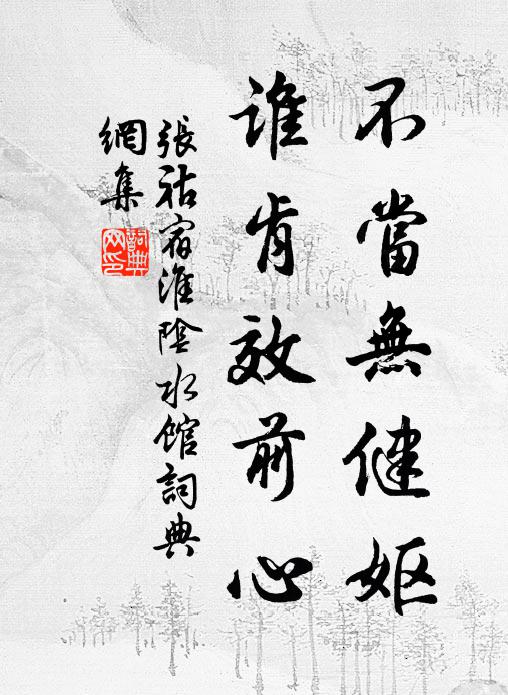 不當無健嫗
誰肯效前心
張祜宿淮陰水館詞典
網集
詞典
網印